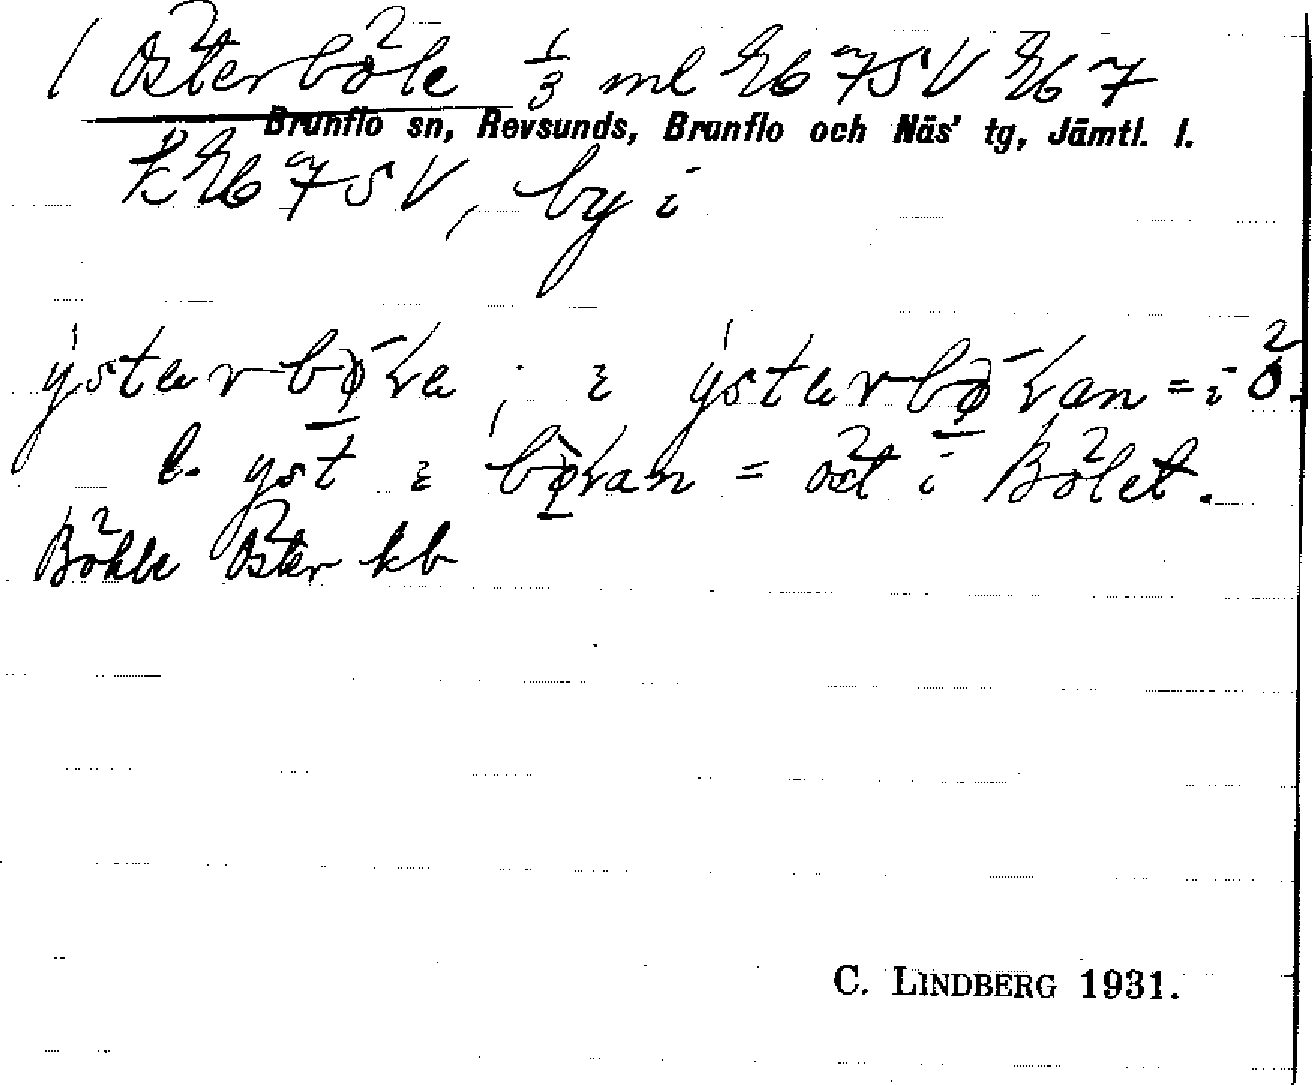 1 Österböle 1/3 ml Gb 75V Gb 7
Brunflo sn, Revsunds, Brunflo och Näs' tg, Jämtl. l.
75V, by i
ystarbø̄la, i ystarbø̄lan = i Ö.
l. yst i bø̀lan = öst i Bölet.
Böhle Öster kb
C. LINDBERG 1931.